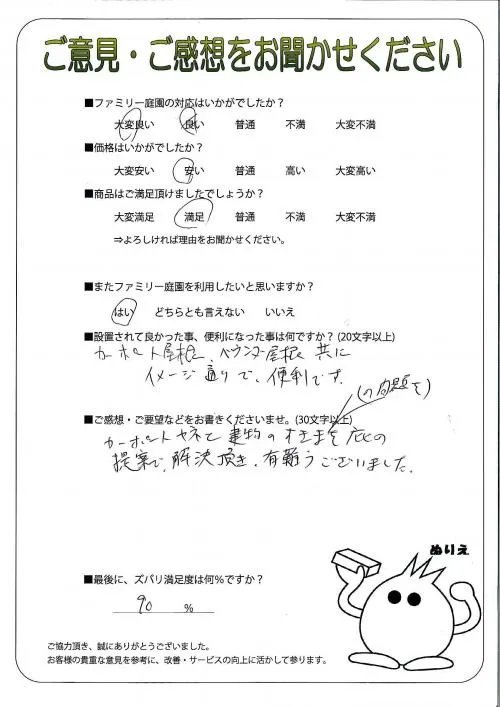 ご意見・ご感想をお聞かせください
■ファミリー庭園の対応はいかがでしたか？
大変良い 良い 普通 不満 大変不満
■価格はいかがでしたか？
大変安い 安い 普通 高い 大変高い
■商品はご満足頂けましたでしょうか？
大変満足 満足 普通 不満 大変不満
⇒よろしければ理由をお聞かせください。
■またファミリー庭園を利用したいと思いますか？
はい どちらとも言えない いいえ
■設置されて良かった事、便利になった事は何ですか？(20文字以上)
カーポート屋根、ベランダ屋根 共に
イメージ通りで、便利です。
■ご感想・ご要望などをお書きくださいませ。(30文字以上)
(の問題を)
カーポートヤネと建物のすきまを庇の
提案で、解決頂き、有難うございました。
ぬりえ
■最後に、ズバリ満足度は何％ですか？
90 ％
ご協力頂き、誠にありがとうございました。
お客様の貴重な意見を参考に、改善・サービスの向上に活かして参ります。